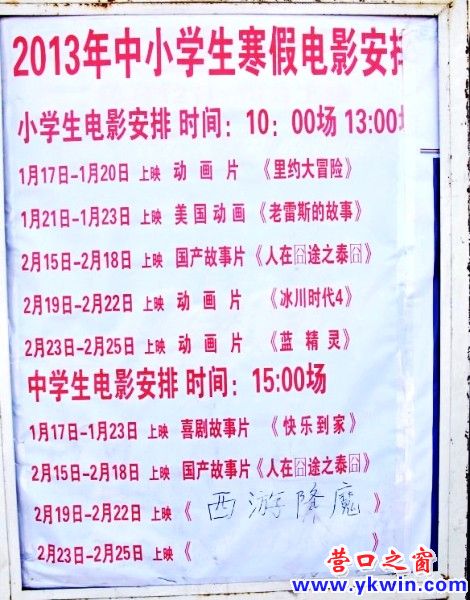 2013年中小学生寒假电影安排
小学生电影安排 时间：10：00场 13:00场
1月17日-1月20日 上映 动 画 片 《里约大冒险》
1月21日-1月23日 上映 美国动画《老雷斯的故事》
2月15日-2月18日 上映 国产故事片《人在囧途之泰囧》
2月19日-2月22日 上映 动 画 片 《冰川时代4》
2月23日-2月25日 上映 动 画 片 《蓝 精 灵》
中学生电影安排 时间：15:00场
1月17日-1月23日 上映 喜剧故事片 《快乐到家》
2月15日-2月18日 上映 国产故事片《人在囧途之泰囧》
2月19日-2月22日 上映《 西游降魔 》
2月23日-2月25日 上映《 》
营口之窗
www.ykwin.com